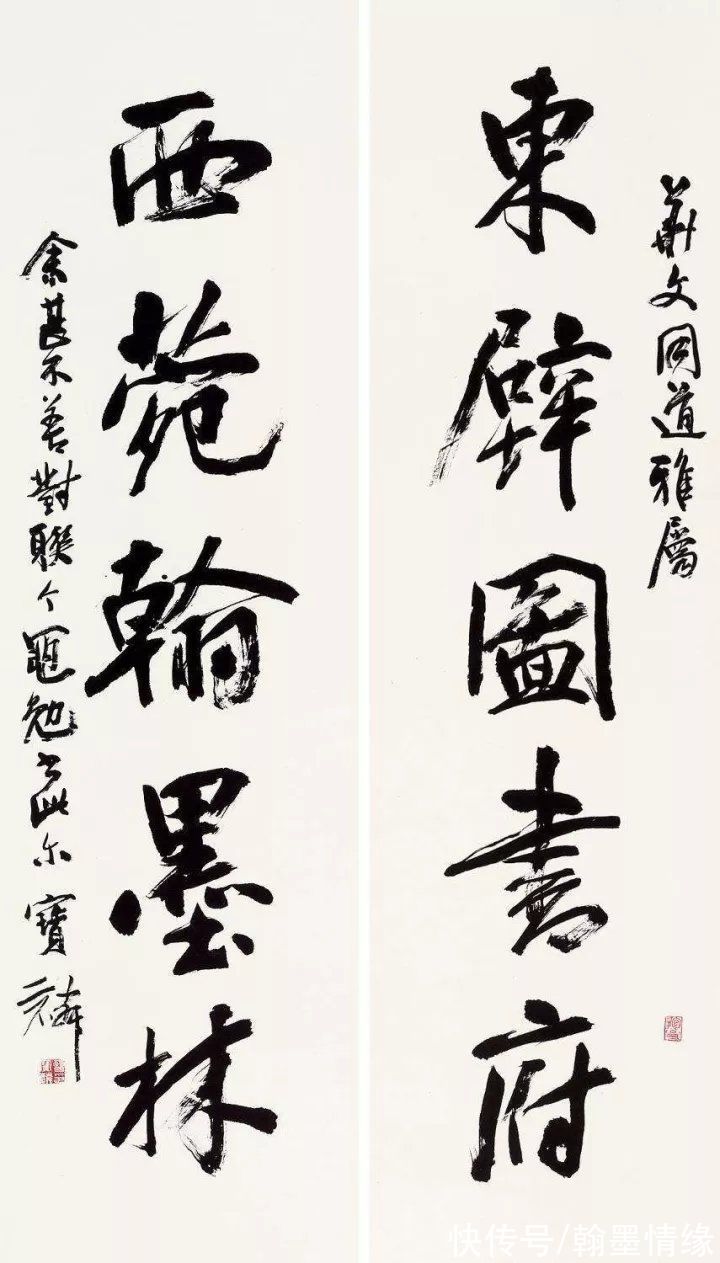 華文同道雅屬
東壁圖書府
西苑翰墨林
余甚不善對聯今黽勉書此尔 寶麟
快传号/翰墨情缘